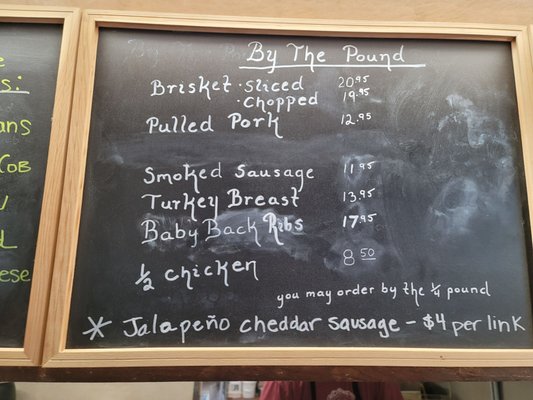 s:
ans
COB
ese
By The Pound
Brisket · sliced 20.95
· chopped 19.95
Pulled Pork 12.95
Smoked Sausage 11.95
Turkey Breast 13.95
Baby Back Ribs 17.95
½ chicken 8 50
you may order by the ¼ pound
* Jalapeño cheddar sausage - $4 per link